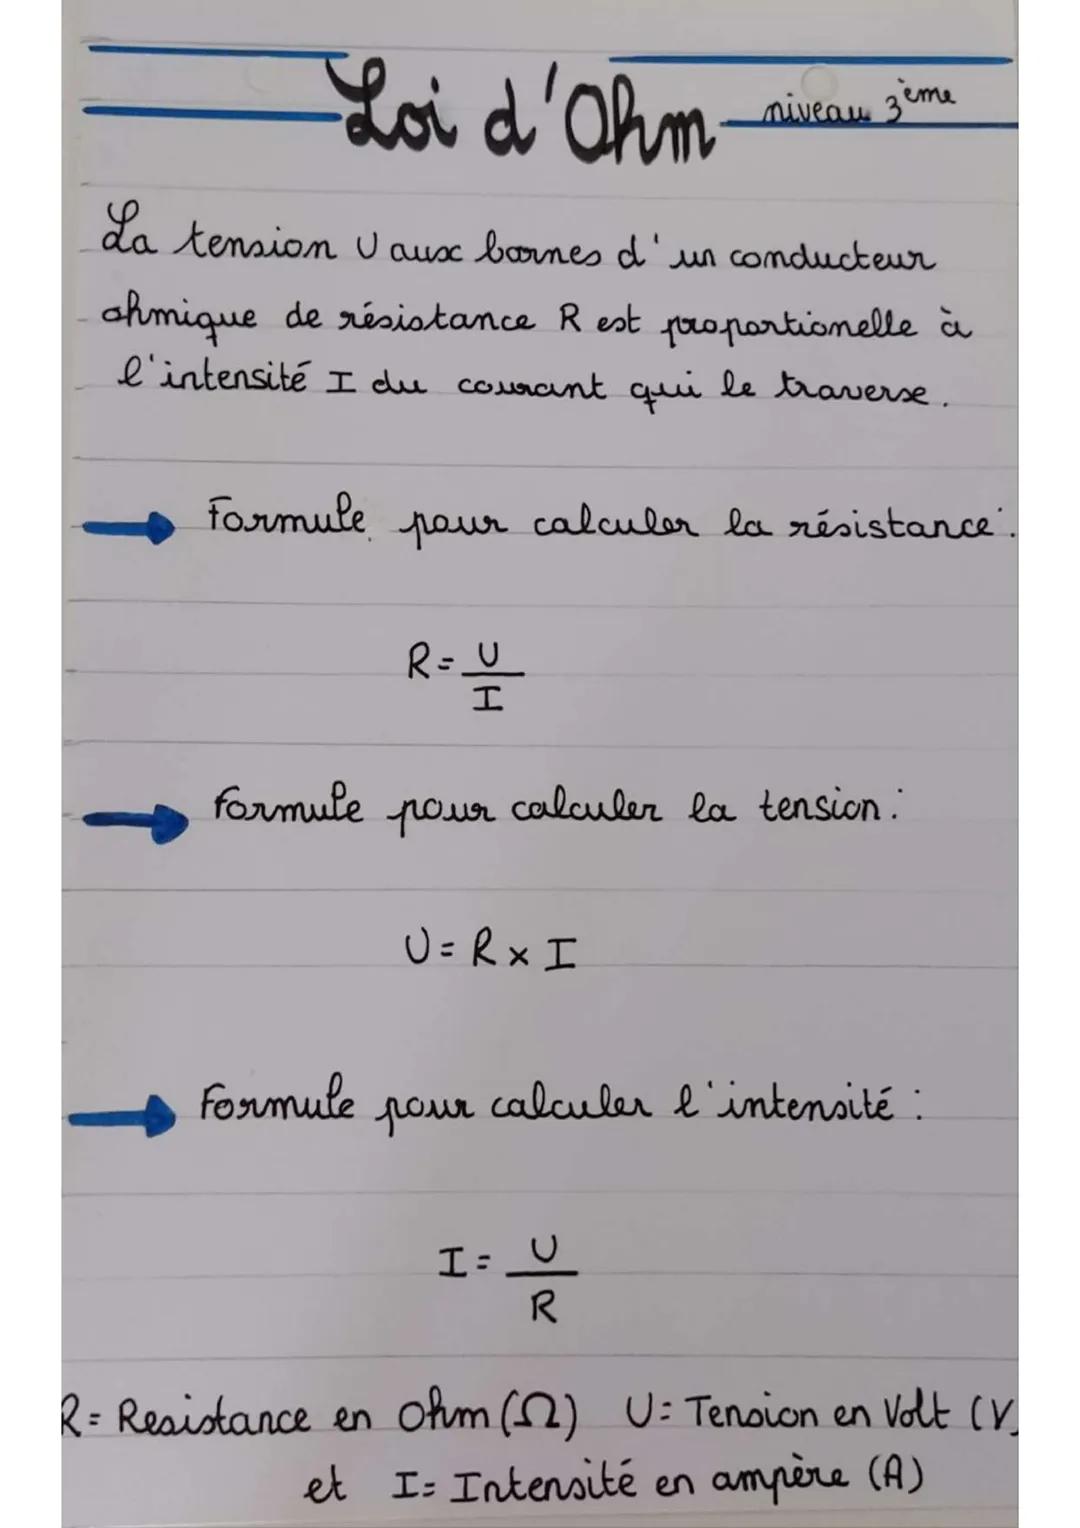 Loi d'Ohm niveau 3ème
La tension U aux bornes d'un conducteur
ohmique de résistance R est proportionelle à
l'intensité I du courant qui le traverse.
Formule pour calculer la résistance :
R = U
I
Formule pour calculer la tension :
U = R x I
Formule pour calculer l'intensité :
I = U
R
R = Resistance en Ohm (Ω) U = Tension en Volt (V)
et I = Intensité en ampère (A)